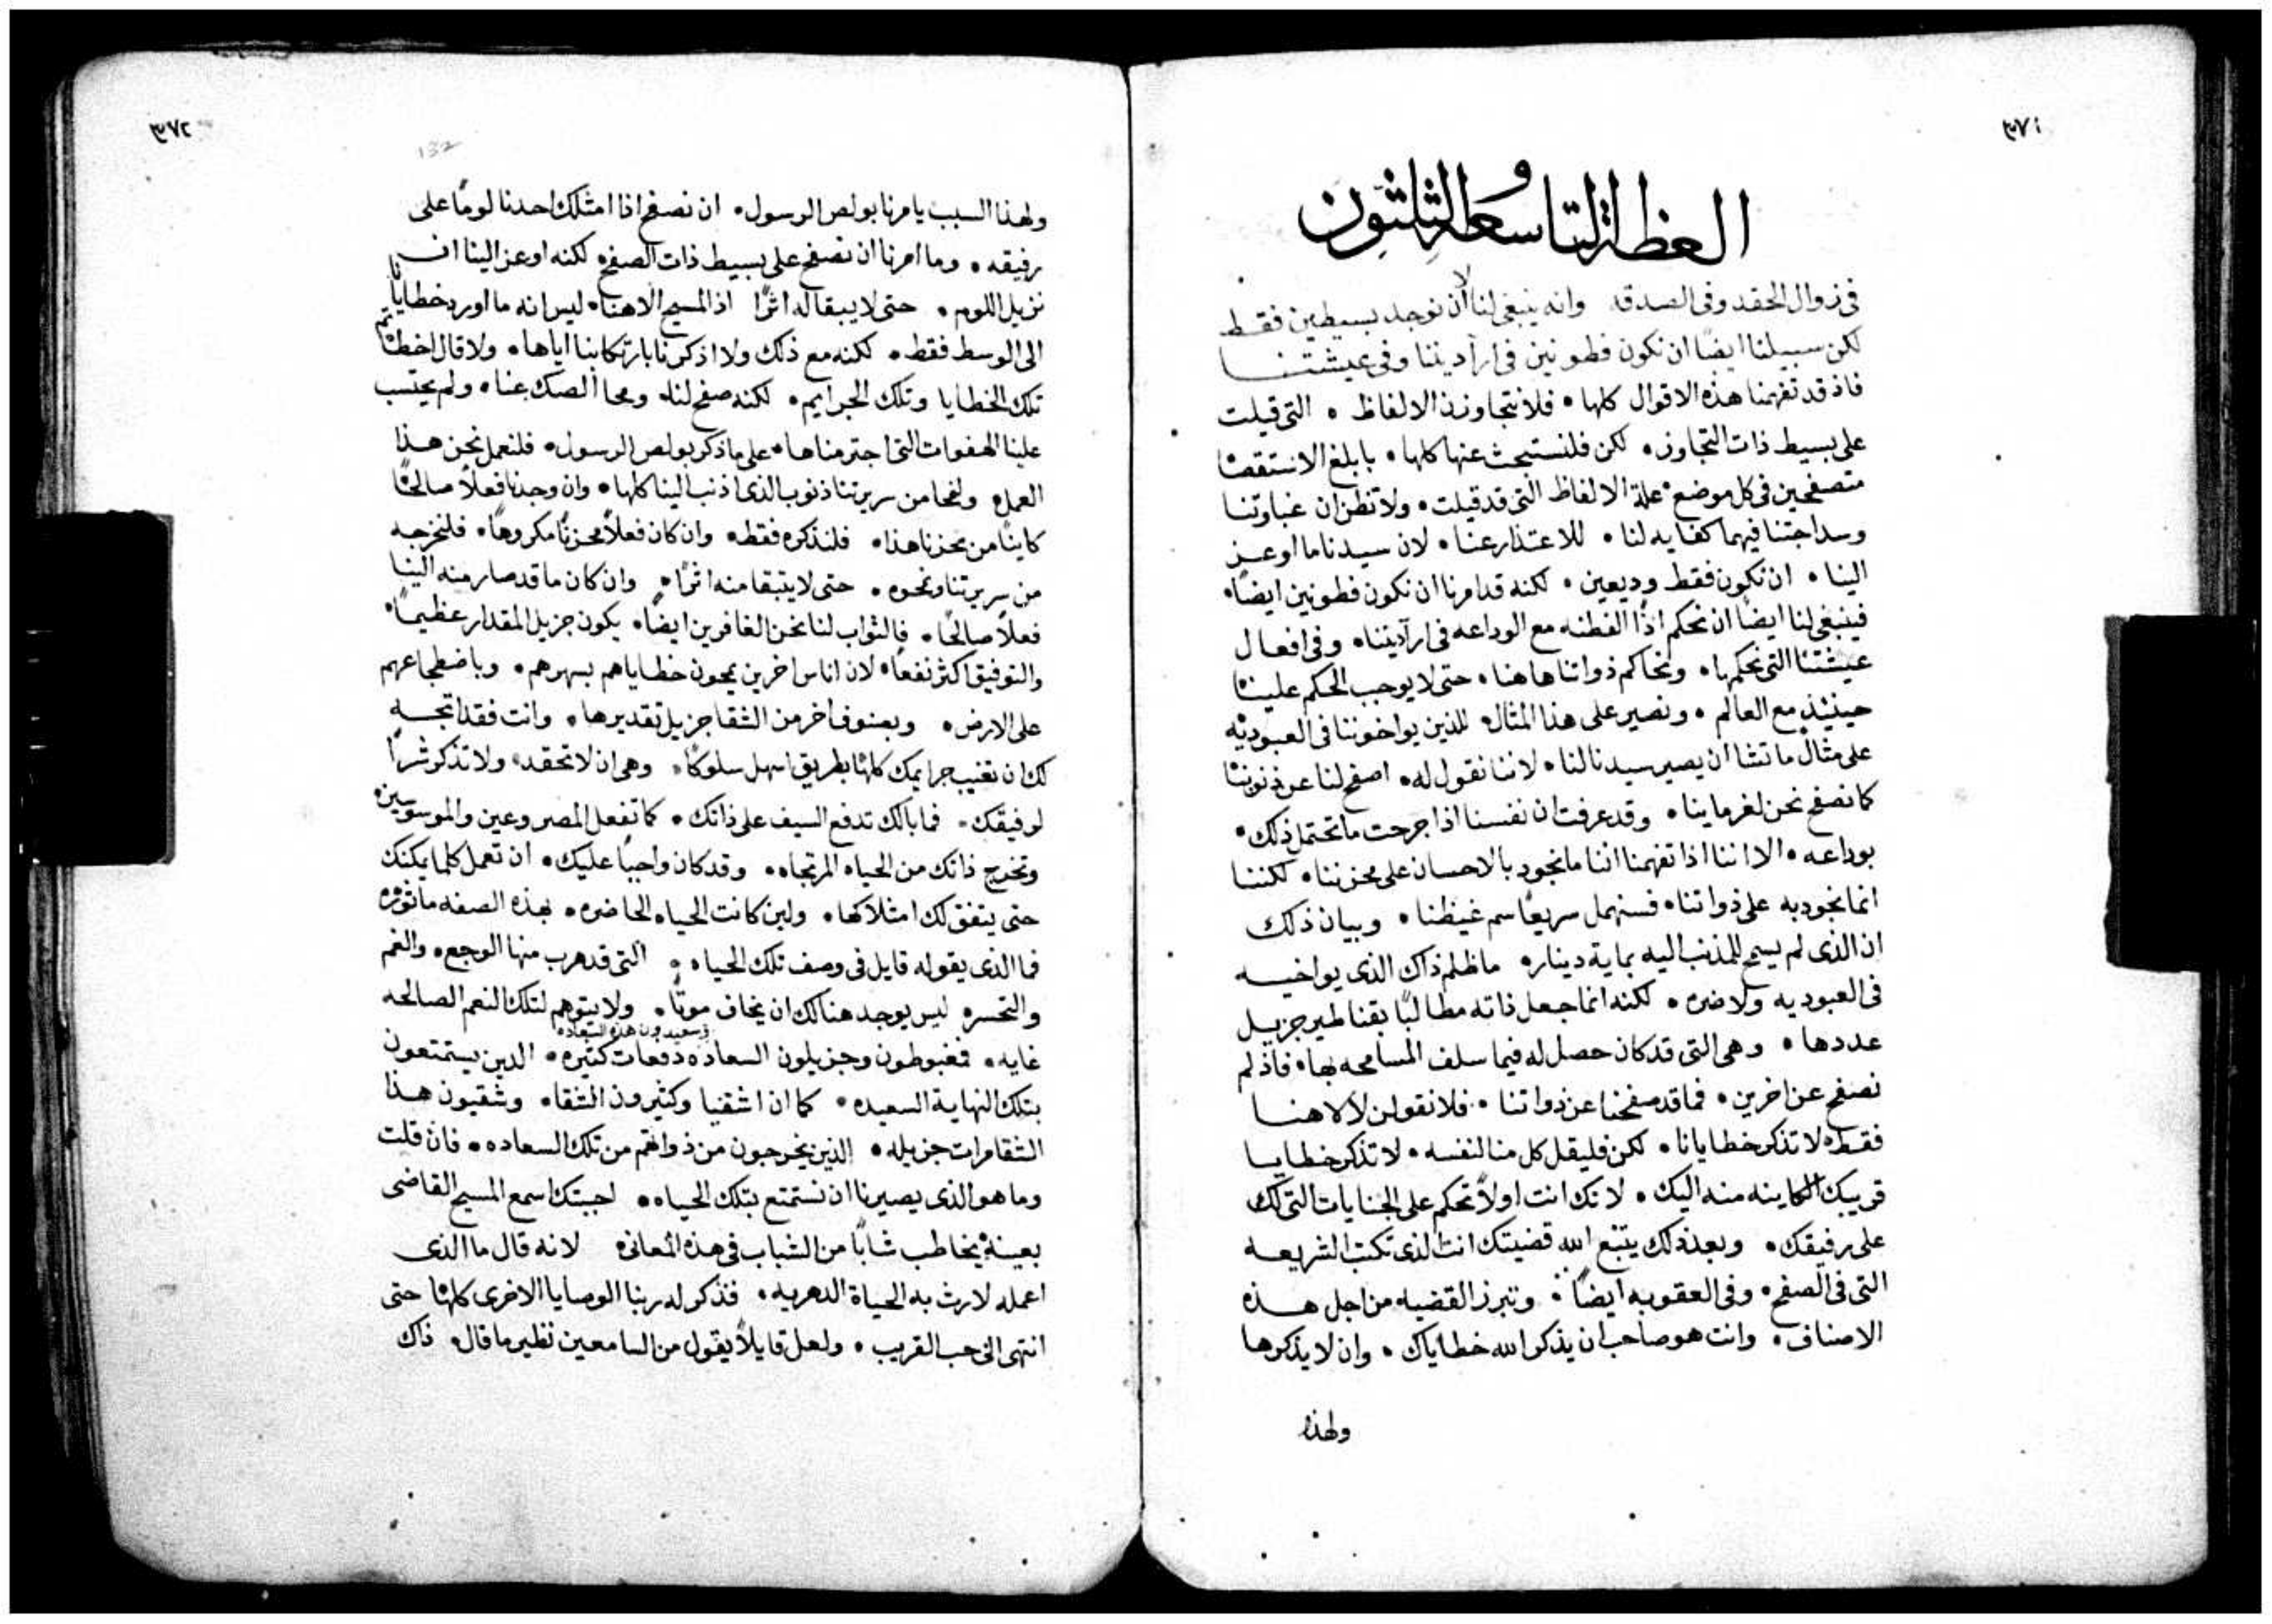 ٣٧١
العظة التاسعة والثلثون
في زوال الحقد وفي الصدقه وانه ينبغي لنا الا ان نوجد بسيطين فقط
لكن سبيلنا ايضًا ان نكون فطونين في ارآديننا وفي عيشتنا
فاذ قد تفهمنا هذه الاقوال كلها • فلا نتجاوزن الالفاظ • التي قيلت
على بسيط ذات التجاوز • لكن فلنستبحث عنها كلها • بابلغ الاستقصا
متصفحين في كل موضع علة الالفاظ التي قد قيلت • ولا تظن ان غباوتنا
وسداجتنا فيهما كفايه لنا • للاعتذار عنا • لان سيدنا ما اوعز
الينا • ان نكون فقط وديعين • لكنه قد امرنا ان نكون فطونين ايضًا •
فينبغي لنا ايضًا ان نحكم اذًا الفطنه مع الوداعه في ارآديننا • وفي افعال
عيشتنا التي نحكمها • ونحاكم ذواتنا هاهنا • حتى لا يوجب الحكم علينا
حينئذٍ مع العالم • ونصير على هذا المثال للذين يواخوننا في العبوديه
على مثال ما نشا ان يصير سيدنا لنا • لاننا نقول له • اصفح لنا عن ذنوبنا
كما نصفح نحن لغرماينا • وقد عرفت ان نفسنا اذا جرحت ما تحتمل ذلك •
بوداعه • الا اننا اذا تفهمنا اننا ما نجود بالاحسان على محزننا • لكننا
انما نجود به على ذواتنا • فسنهمل سريعًا سم غيظنا • وبيان ذلك
ان الذي لم يسمح للمذنب اليه بماية دينار • ما ظلم ذاك الذي يواخيه
في العبوديه ولا ضره • لكنه انما جعل ذاته مطالبًا بقناطير جزيل
عددها • وهي التي قد كان حصل له فيما سلف المسامحه بها • فاذ لم
نصفح عن اخرين • فما قد صفحنا عن ذواتنا • فلا نقولن لالاهنا
فقط لا تذكر خطايانا • لكن فليقل كل منا لنفسه • لا تذكر خطايا
قريبك الكاينه منه اليك • لانك انت اولًا تحكم على الجنايات التي لك
على رفيقك • وبعد ذلك يتبع الله قضيتك انت الذي تكتب الشريعه
التي في الصفح • وفي العقوبه ايضًا • وتبرز القضيه من اجل هذه
الاصناف • وانت هو صاحب ان يذكر الله خطاياك • وان لا يذكرها
ولهذا
٣٧٢
132
ولهذا السبب يامرنا بولص الرسول • ان نصفح اذا امتلك احدنا لومًا على
رفيقه • وما امرنا ان نصفح على بسيط ذات الصفح لكنه اوعز الينا ان
نزيل اللوم • حتى لا يبقا له اثرًا اذ المسيح الاهنا • ليس انه ما اورد خطايانا
الى الوسط فقط • لكنه مع ذلك ولا اذكرنا بارتكابنا اياها • ولا قال اخطاتم
تلك الخطايا وتلك الجرايم • لكنه صفح لنا • ومحا الصك عنا • ولم يحتسب
علينا الهفوات التي اجترمناها • على ما ذكر بولص الرسول • فلنعمل نحن هذا
العمل • ولنمحا من سريرتنا ذنوب الذي اذنب الينا كلها • وان وجدنا فعلًا صالحًا
كاينًا من محزننا هذا • فلنذكره فقط • وان كان فعلًا محزنًا مكروهًا • فلنخرجه
من سريرتنا ونمحوه • حتى لا يتبقا منه اثرًا • وان كان ما قد صار منه الينا
فعلًا صالحًا • فالثواب لنا نحن الغافرين ايضًا • يكون جزيل المقدار عظيمًا •
والتوفيق اكثر نفعًا • لان اناس اخرين يمحون خطاياهم بسهرهم • وباضطجاعهم
على الارض • وبصنوف اخر من الشقا جزيل تقديرها • وانت فقد اتجه
لك ان تغيب جرايمك كلها بطريق اسهل سلوكًا • وهي ان لا تحقد • ولا تذكر شرًا
لرفيقك • فما بالك تدفع السيف على ذاتك • كما تفعل المصروعين والموسوسين
وتخرج ذاتك من الحياه المرتجاه • وقد كان واجبًا عليك • ان تعمل كلما يمكنك
حتى يتفق لك امتلاكها • ولين كانت الحياه الحاضره • بهذه الصفه ماثوره
فما الذي يقوله قايل في وصف تلك الحياه • التي قد هرب منها الوجع • والغم
والتحسر • ليس يوجد هنالك ان يخاف موتًا • ولا يتوهم لتلك النعم الصالحه
وسعيدون هذه السعاده
غايه • فمغبوطون وجزيلون السعاده دفعات كثيره • الدين يستمتعون
بتلك النهاية السعيده • كما ان اشقيا وكثيرون الشقا • وشقيون هذا
الشقا مرات جزيله • الذين يخرجون من ذواتهم من تلك السعاده • فان قلت
وما هو الذي يصيرنا ان نستمتع بتلك الحياه • اجبتك اسمع المسيح القاضي
بعينه يخاطب شابًا من الشباب في هذه المعاني لانه قال ما الذي
اعمله لارث به الحياة الدهريه • فذكر له ربنا الوصايا الاخرى كلها حتى
انتهى الى حب القريب • ولعل قايلًا يقول من السامعين نظير ما قال ذاك